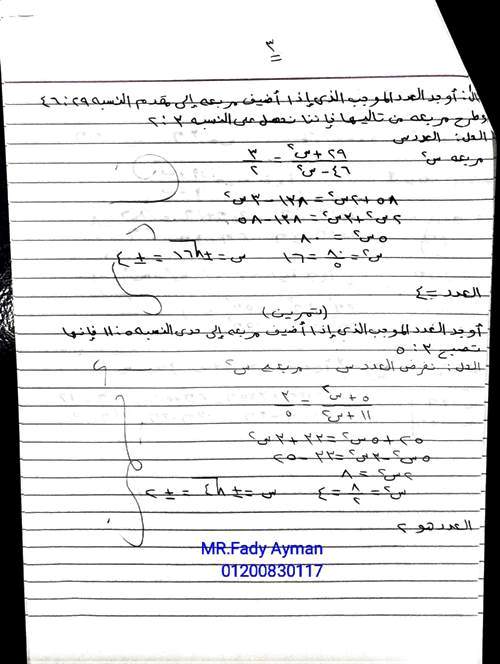 ٣
مثال: أوجد العدد الموجب الذي إذا أضيف مربعه إلى مقدم النسبة ٢٩ : ٤٦
وطرح مربعه من تاليها فإننا نحصل على النسبة ٣ : ٢
الحل: العدد س
مربعه س٢
٢٩ + س٢ / ٤٦ - س٢ = ٣ / ٢
٥٨ + ٢س٢ = ١٣٨ - ٣س٢
٢س٢ + ٣س٢ = ١٣٨ - ٥٨
٥س٢ = ٨٠
س٢ = ٨٠ / ٥ = ١٦ س = ±√١٦ = ±٤
العدد = ٤
(تمرين)
أوجد العدد الموجب الذي إذا أضيف مربعه إلى حدى النسبة ٥ : ١١ فإنها
تصبح ٣ : ٥
الحل: نفرض العدد س مربعه س٢
٥ + س٢ / ١١ + س٢ = ٣ / ٥
٢٥ + ٥س٢ = ٣٣ + ٣س٢
٥س٢ - ٣س٢ = ٣٣ - ٢٥
٢س٢ = ٨
س٢ = ٨ / ٢ = ٤ س = ±√٤ = ±٢
العدد هو ٢
MR.Fady Ayman
01200830117